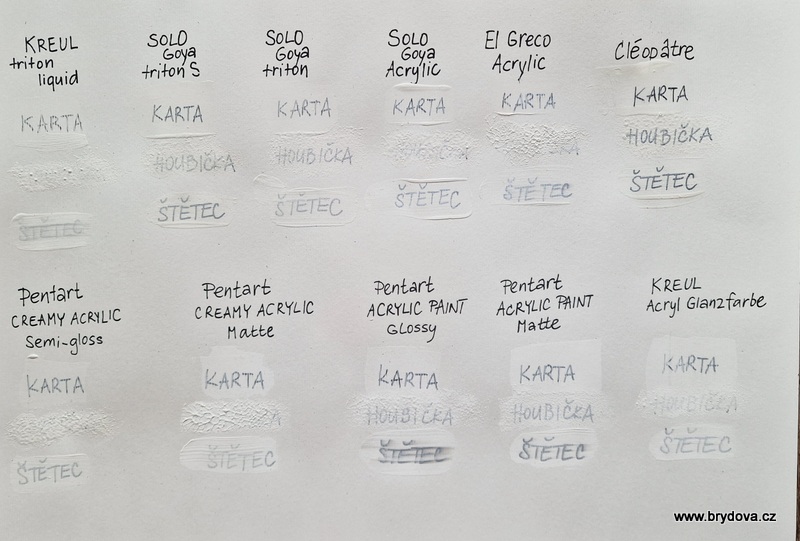 KREUL
triton
liquid
SOLO
Goya
triton S
SOLO
Goya
triton
SOLO
Goya
Acrylic
El Greco
Acrylic
Cléopâtre
KARTA
KARTA
KARTA
KARTA
KARTA
KARTA
HOUBIČKA
HOUBIČKA
HOUBIČKA
ŠTĚTEC
ŠTĚTEC
ŠTĚTEC
ŠTĚTEC
ŠTĚTEC
ŠTĚTEC
Pentart
CREAMY ACRYLIC
Semi-gloss
Pentart
CREAMY ACRYLIC
Matte
Pentart
ACRYLIC PAINT
Glossy
Pentart
ACRYLIC PAINT
Matte
KREUL
Acryl Glanzfarbe
KARTA
KARTA
KARTA
KARTA
KARTA
HOUBIČKA
HOUBIČKA
HOUBIČKA
ŠTĚTEC
ŠTĚTEC
ŠTĚTEC
ŠTĚTEC
ŠTĚTEC
www.brydova.cz